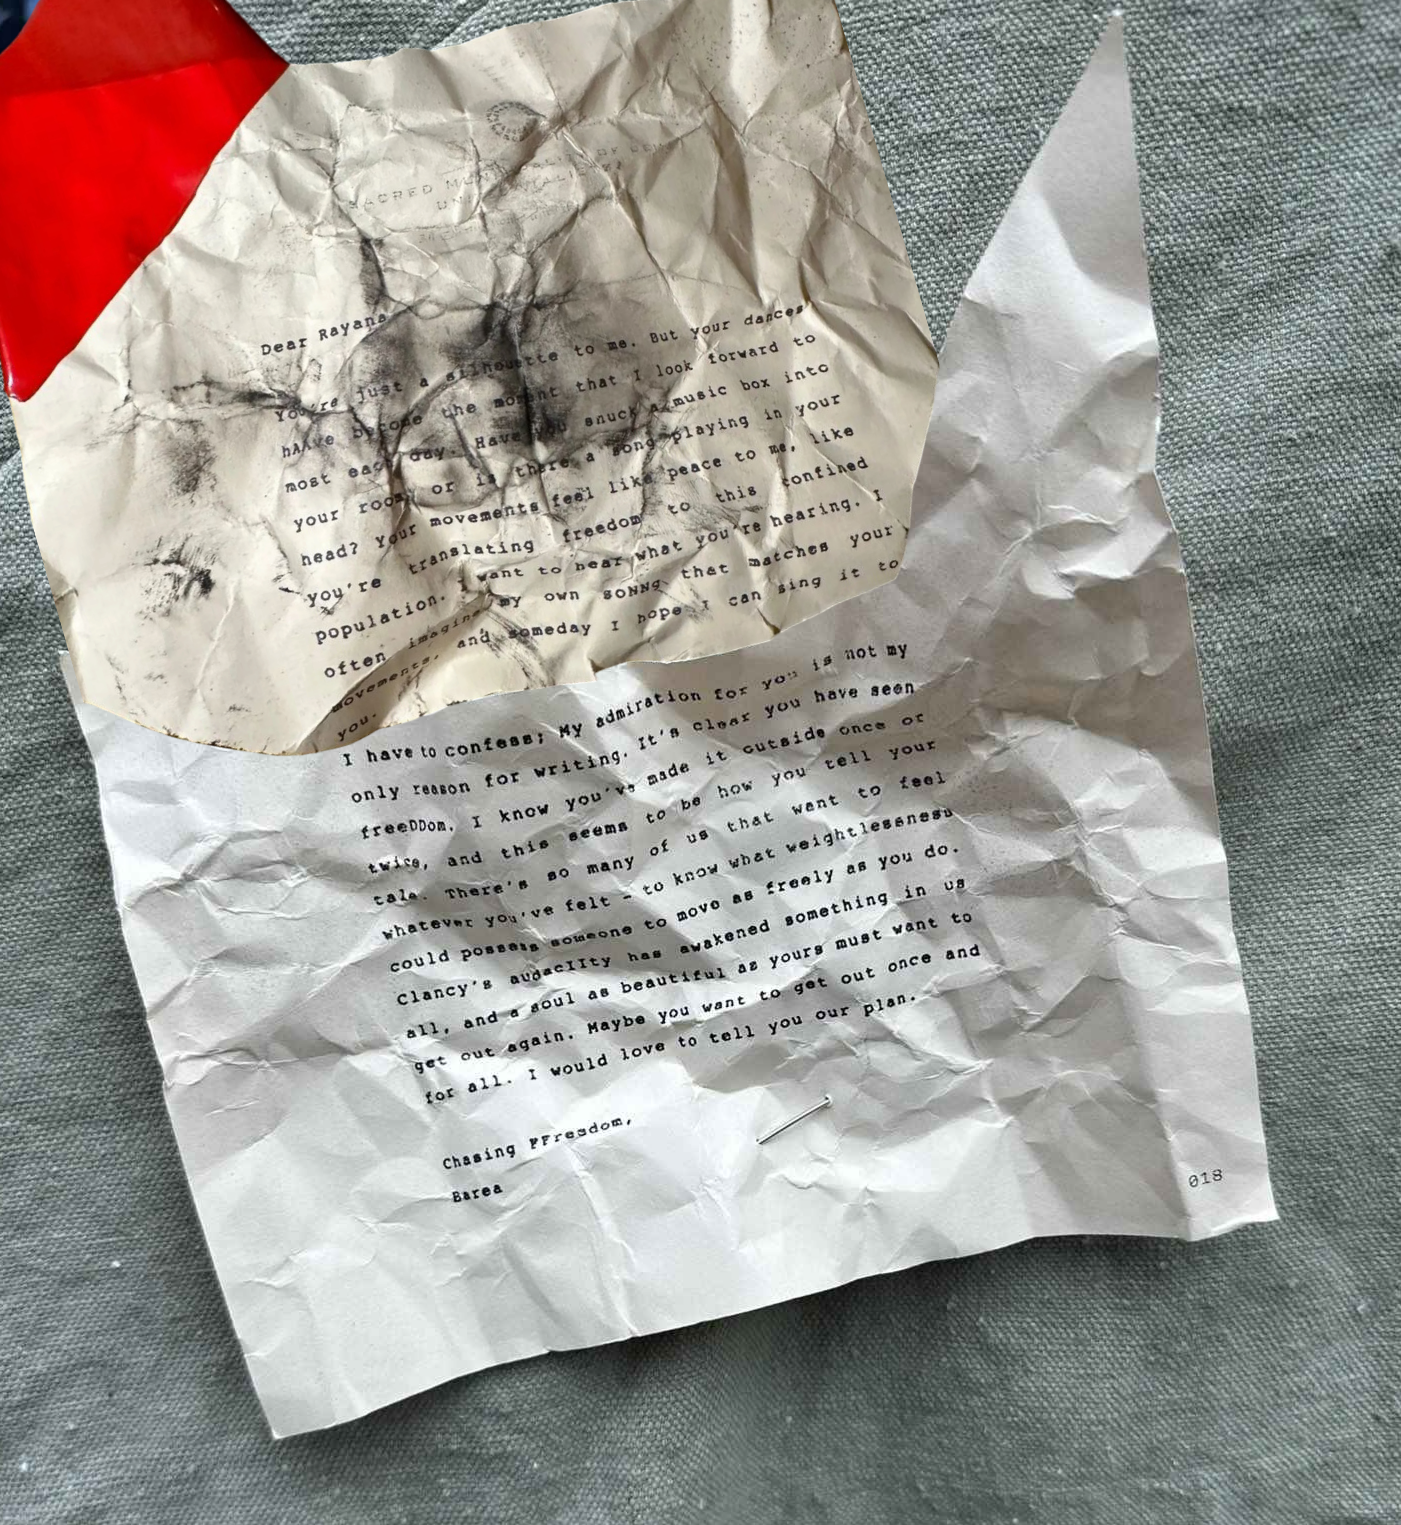 SACRED MUNICIPALITY OF DEMA
UN
Dear Rayana
You're just a silhouette to me. But your dances
hAAve become the moment that I look forward to
most each day. Have you snuck a music box into
your room, or is there a song playing in your
head? Your movements feel like peace to me, like
you're translating freedom to this confined
population. I want to hear what you're hearing. I
often imagine my own soNNg that matches your
movements, and someday I hope I can sing it to
you.
I have to confess; My admiration for you is not my
only reason for writing. It's clear you have seen
freeDDom. I know you've made it outside once or
twice, and this seems to be how you tell your
tale. There's so many of us that want to feel
whatever you've felt - to know what weightlessness
could possess someone to move as freely as you do.
Clancy's audacIIty has awakened something in us
all, and a soul as beautiful as yours must want to
get out again. Maybe you want to get out once and
for all. I would love to tell you our plan.
Chasing FFreedom,
Barea
018